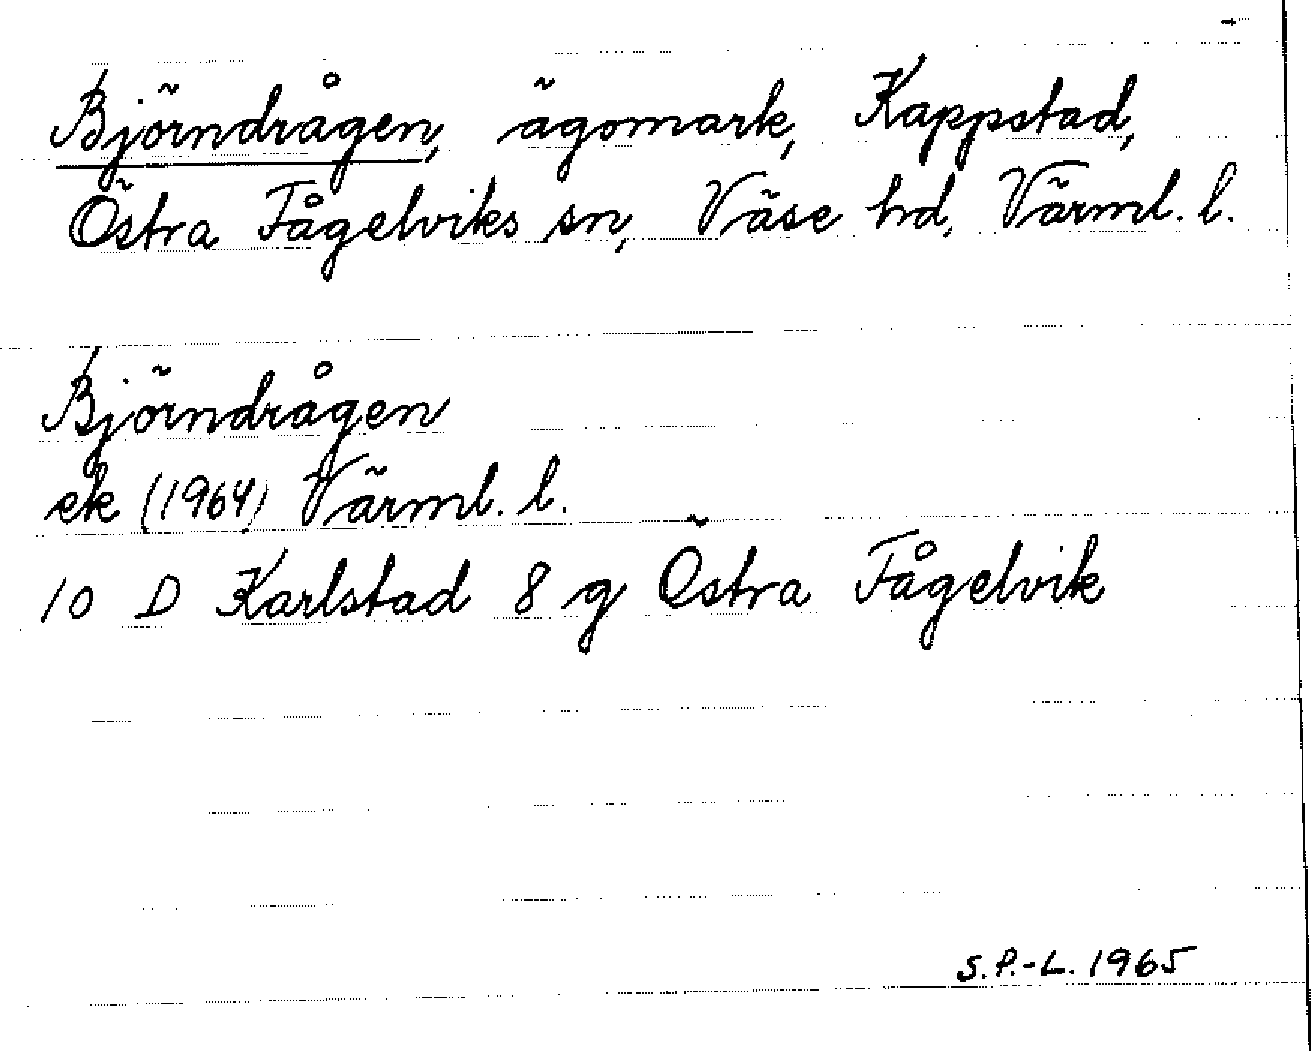 Björndrågen, ägomark, Kappstad,
Östra Fågelviks sn, Väse hd, Värml. l.
Björndrågen
ek (1964) Värml. l.
10 D Karlstad 8 g Östra Fågelvik
S.P.-L. 1965